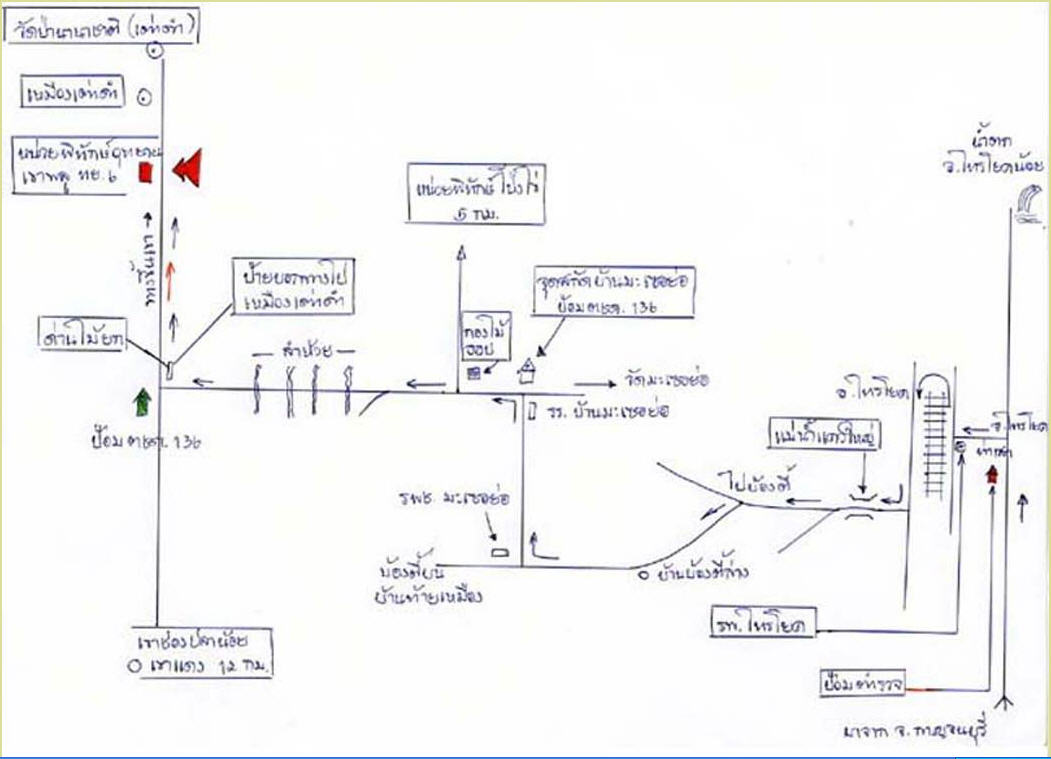 วัดป่านานาชาติ (เต่าดำ)
เหมืองเต่าดำ
หน่วยพิทักษ์อุทยาน
เขาพลู ทย. 6
น้ำตก
จ.ไทรโยคน้อย
หน่วยพิทักษ์โป่งไร่
5 กม.
ป้ายบอกทางไป
เหมืองเต่าดำ
จุดสกัดบ้านมะเซอย่อ
ป้อม ตชด. 136
ด่านไม้ยก
ลำห้วย
วัดมะเซอย่อ
รร. บ้านมะเซอย่อ
อ.ไทรโยค
อ.ไทรโยค
ป้อม ตชด. 136
แม่น้ำแควใหญ่
ไปบ้องตี้
รพช. มะเซอย่อ
บ้องตี้บน
บ้านท้ายเหมือง
บ้านบ้องตี้ล่าง
รพ.ไทรโยค
เขาช่องปลาน้อย
เขาแดง 12 กม.
ป้อมตำรวจ
มาจาก จ.กาญจนบุรี